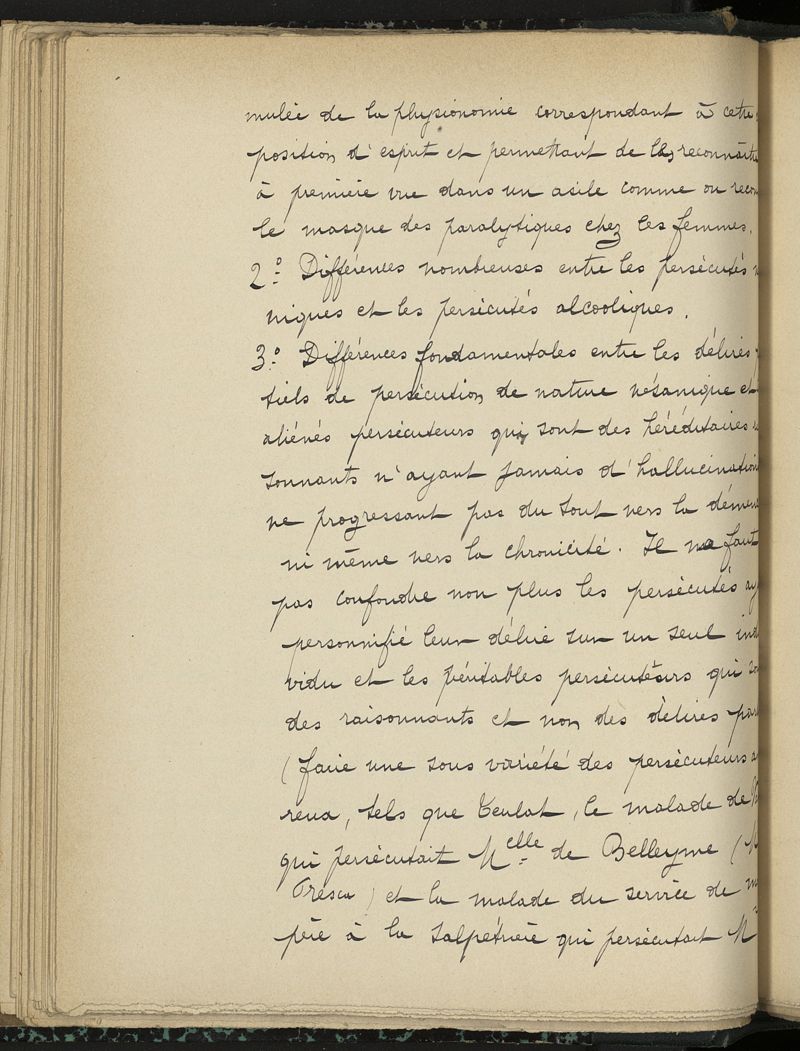 mulée de la physionomie correspondant à cette
position d'esprit et permettant de les reconnaître
à première vue dans un asile comme on recon
le masque des paralytiques chez les femmes.
2.º Différences nombreuses entre les persécutés
niques et les persécutés alcooliques.
3.º Différences fondamentales entre les délires
tiels de persécution de nature vésanique et
aliénés persécuteurs qui sont des héréditaires
sonnants n'ayant jamais d'hallucination
ne progressant pas du tout vers la démen
ni même vers la chronicité. Il ne faut
pas confondre non plus les persécutés ay
personnifié leur délire sur un seul indi
vidu et les véritables persécuteurs qui so
des raisonnants et non des délires par
(faire une sous variété des persécuteurs a
reux, tels que Teulat, le malade de
qui persécutait Mcelle de Belleyme (
Fresca) et la malade du service de m
père à la Salpétrière qui persécutait M